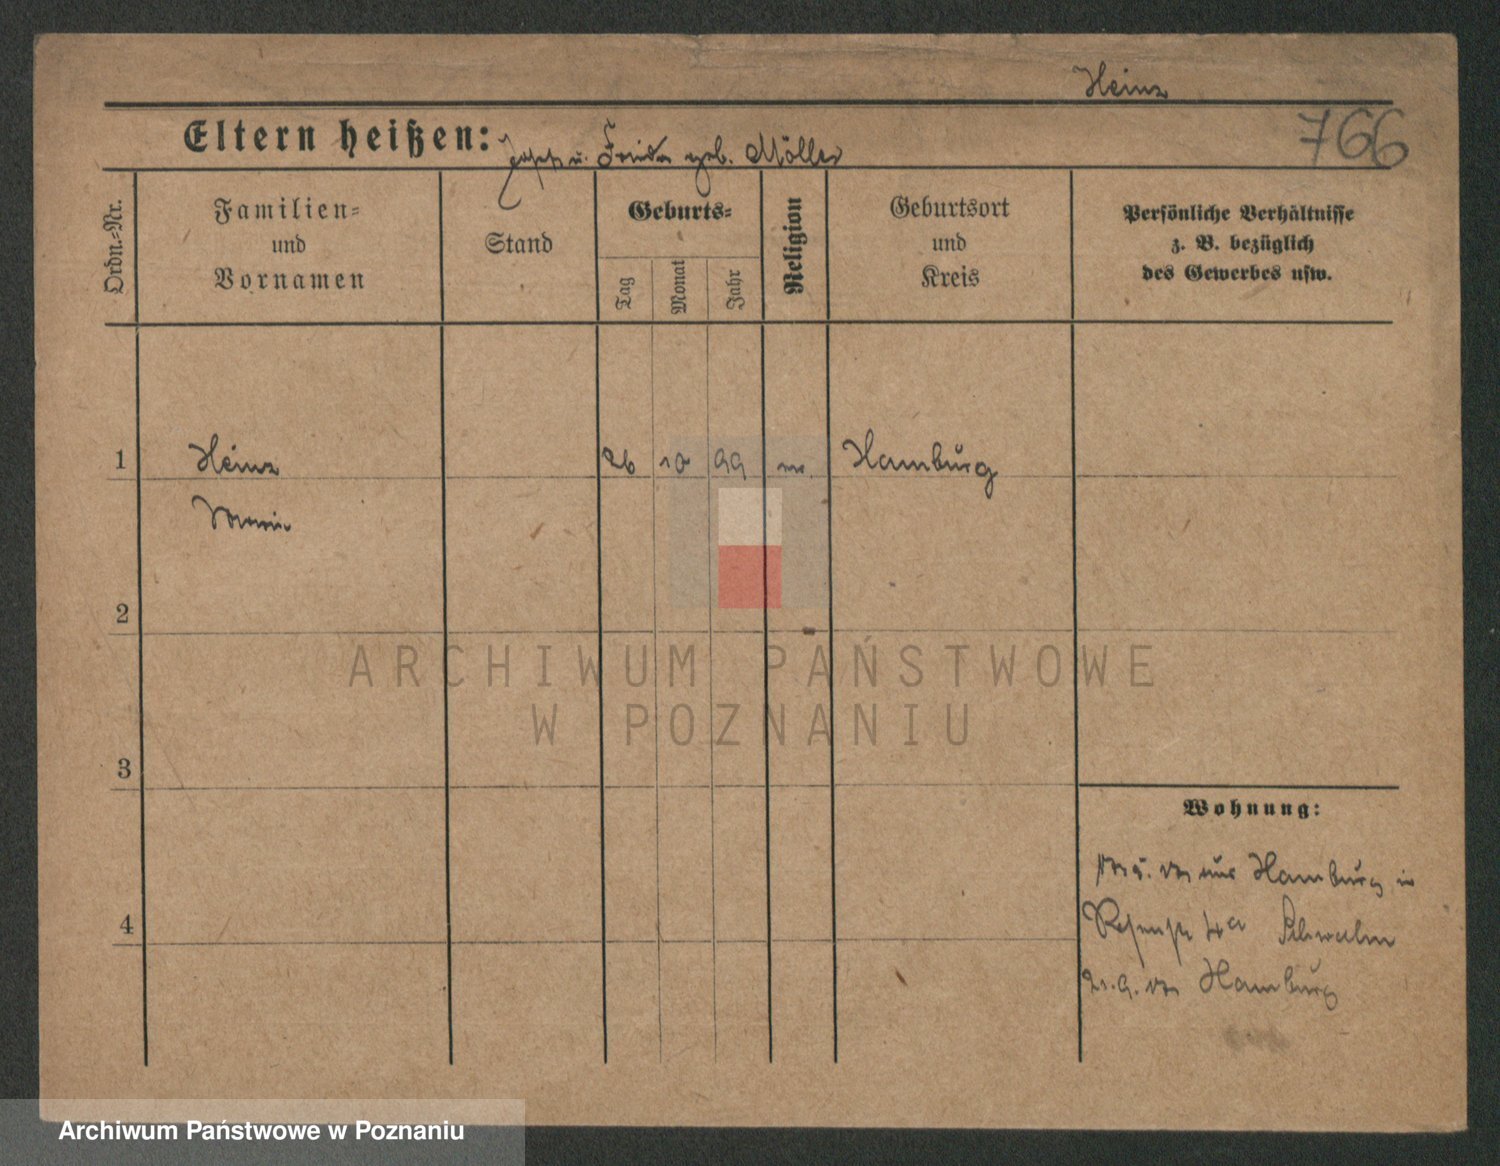 Heinz
Eltern heißen: Joseph u. Frieda geb. Möller
766
Ordn.=Nr.
Familien=
und
Vornamen
Stand
Geburts=
Tag
Monat
Jahr
Religion
Geburtsort
und
Kreis
Persönliche Verhältnisse
z. B. bezüglich
des Gewerbes usw.
1
Heinz
26
10
99
Hamburg
2
3
4
Wohnung:
Hamburg in
Hamburg
ARCHIWUM PAŃSTWOWE
W POZNANIU
Archiwum Państwowe w Poznaniu